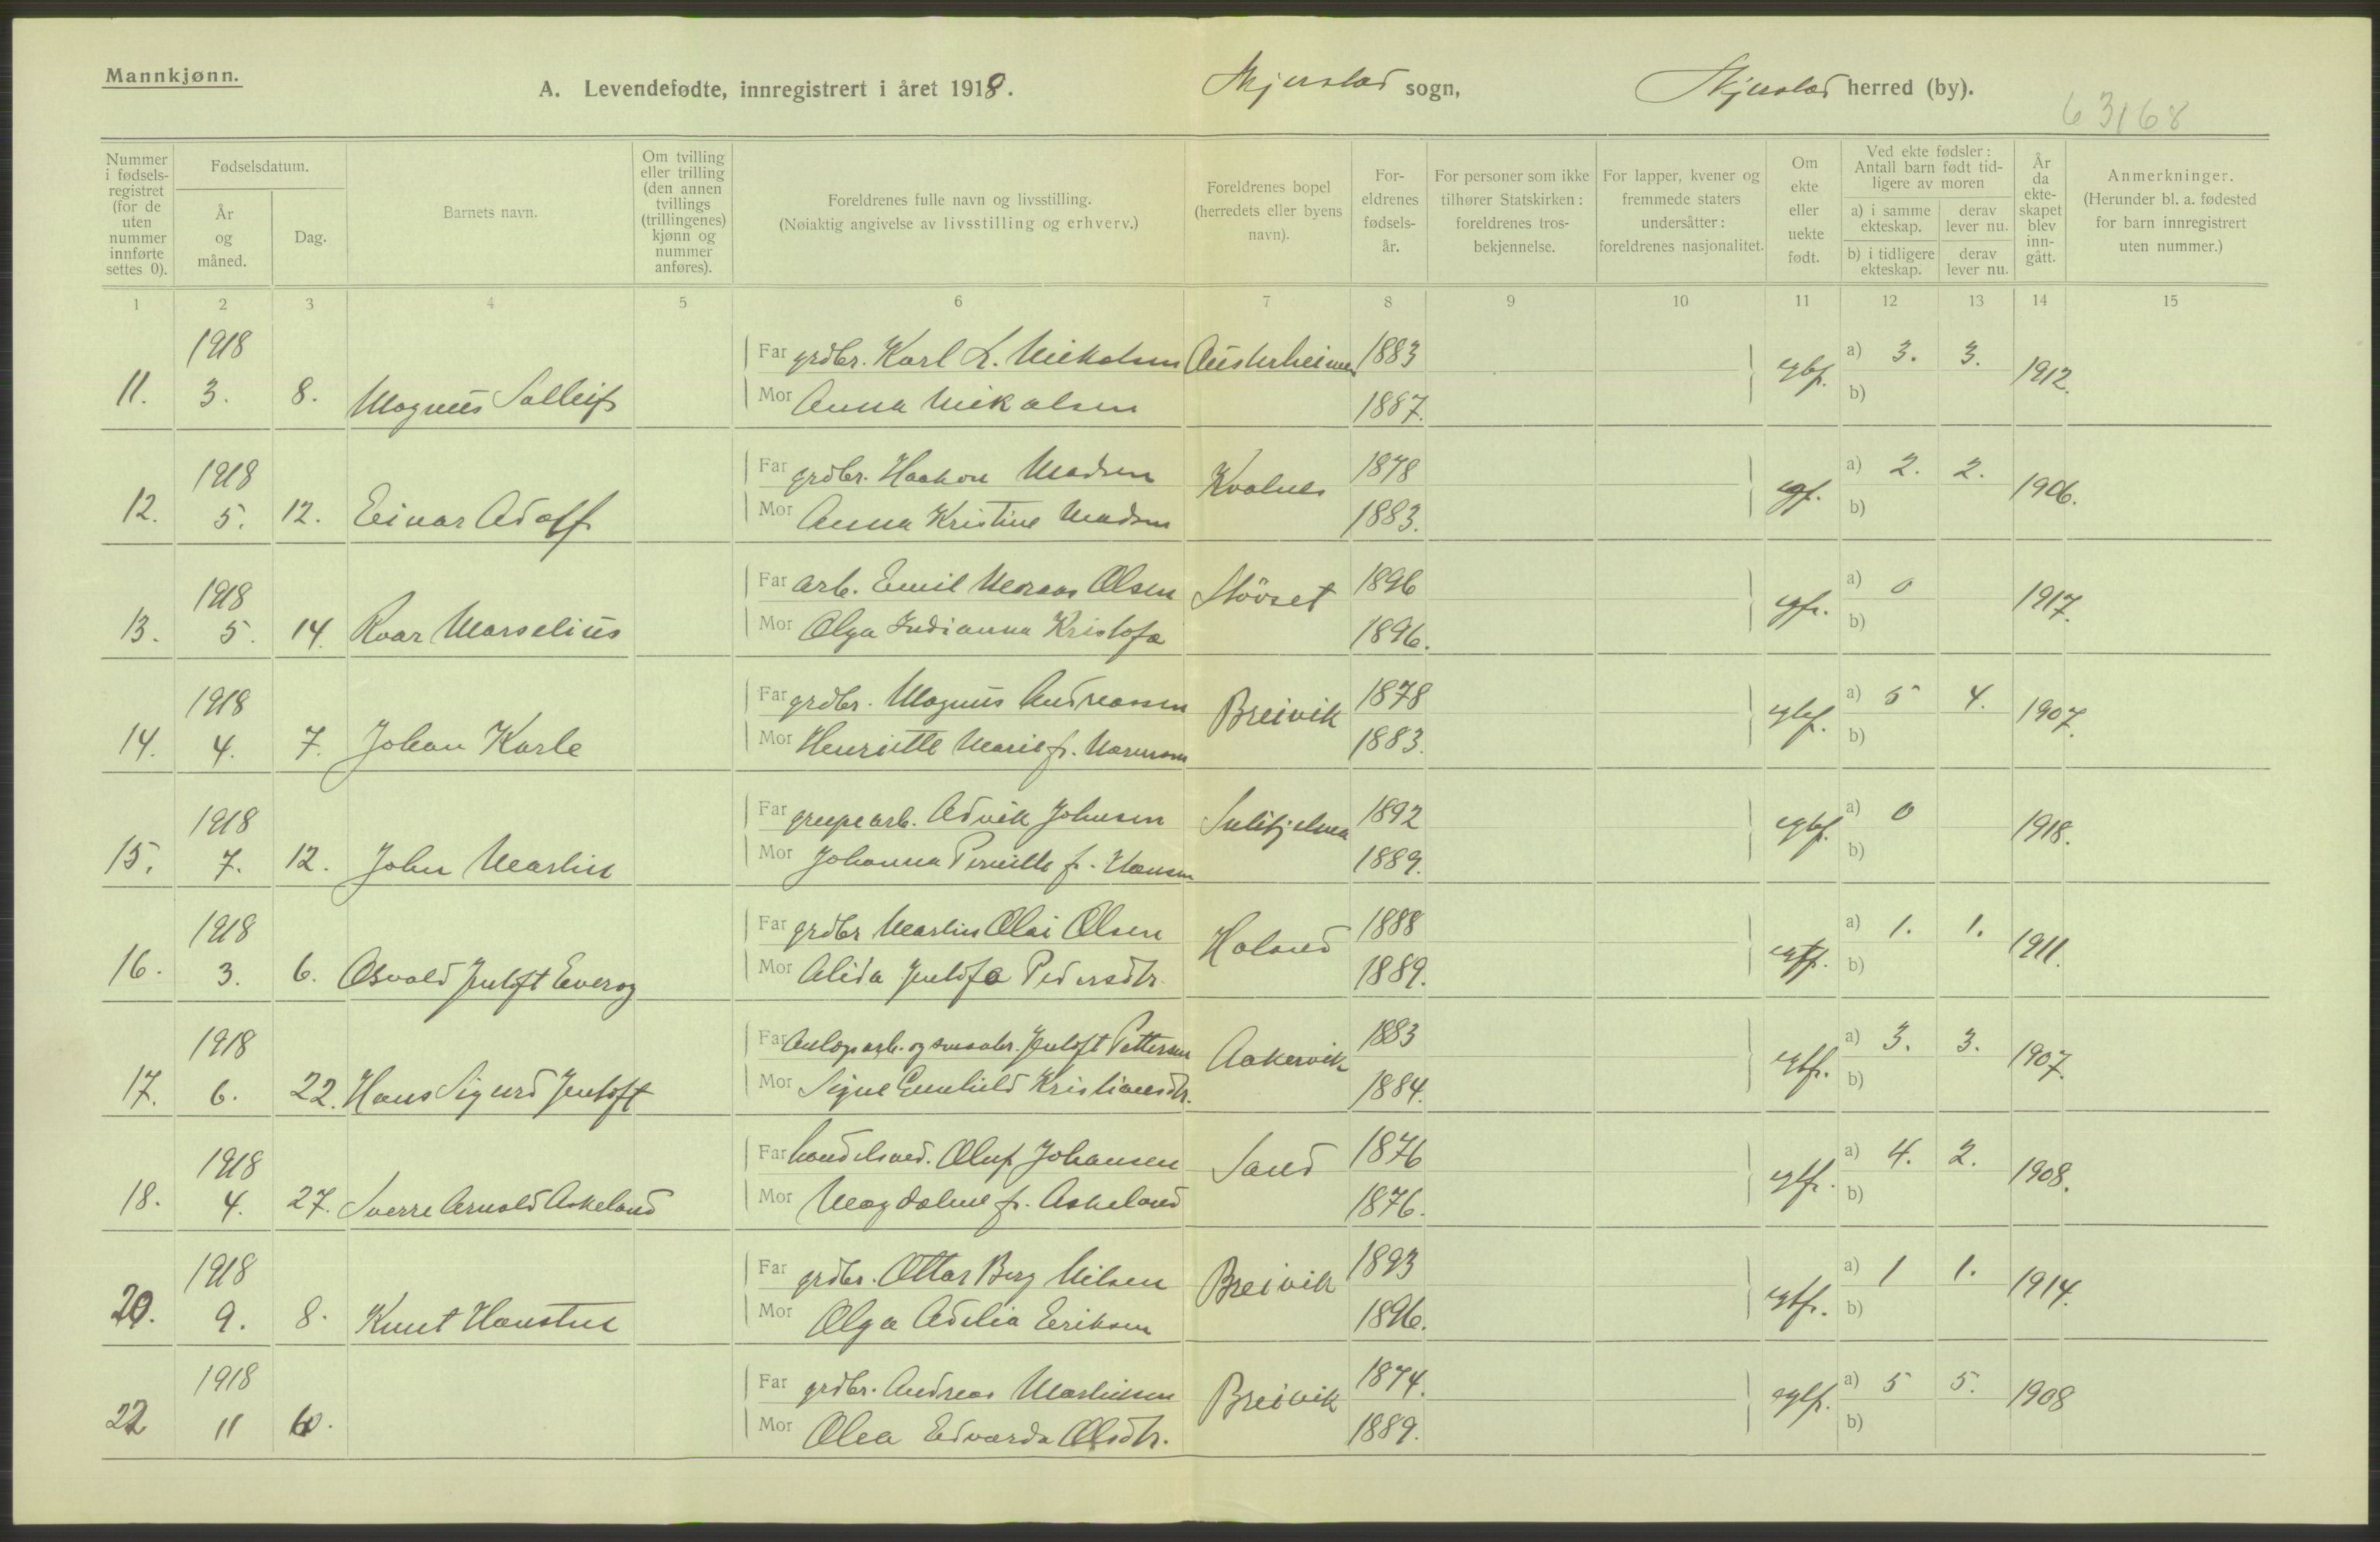 Mannkjønn.
A. Levendefødte, innregistrert i året 1918. Skjerstad sogn, Skjerstad herred (by).
63168
Nummer i fødselsregistret (for de uten nummer innførte settes 0).
Fødselsdatum.
År og måned.
Dag.
Barnets navn.
Om tvilling eller trilling (den annen tvillings (trillingenes) kjønn og nummer anføres).
Foreldrenes fulle navn og livsstilling.
(Nøiaktig angivelse av livsstilling og erhverv.)
Foreldrenes bopel (herredets eller byens navn).
Foreldrenes fødselsår.
For personer som ikke tilhører Statskirken: foreldrenes trosbekjennelse.
For lapper, kvener og fremmede staters undersåtter: foreldrenes nasjonalitet.
Om ekte eller uekte født.
Ved ekte fødsler: Antall barn født tidligere av moren
a) i samme ekteskap.
derav lever nu.
b) i tidligere ekteskap.
derav lever nu.
År da ekteskapet blev inngått.
Anmerkninger.
(Herunder bl. a. fødested for barn innregistrert uten nummer.)
1 2 3 4 5 6 7 8 9 10 11 12 13 14 15
1918 Far grdbr. Karl L. Nikolsen Austerheimen 1883 a) 3. 3. 1912.
11. 3. 8. Magnus Salleif Mor Anna Nikolsen 1887. b)
1918 Far grdbr. Haakon Madsen Kvalnes 1878 a) 2. 2. 1906.
12. 5. 12. Einar Adolf Mor Anna Kristine Madsen 1883. b)
1918 Far arb. Emil Olsen Støvset 1896 a) 0 1917.
13. 5. 14. Roar Marselius Mor Olga Indianna Kristofa 1896. b)
1918 Far grdbr. Magnus Andreassen Breivik 1878 a) 5 4. 1907.
14. 4. 7. Johan Karle Mor Henriette Marie f. 1883. b)
1918 Far grubearb. Advik Johnsen Sulitjelma 1892 a) 0 1918.
15. 7. 12. John Martin Mor Johanna Pernille f. Hansen 1889. b)
1918 Far grdbr Martin Olai Olsen Holand 1888 a) 1. 1. 1911.
16. 3. 6. Osvald Jentoft Everog Mor Alida Jentofa Pedersdtr. 1889. b)
1918 Far og Jentoft Pettersen Aakervik 1883 a) 3. 3. 1907.
17. 6. 22. Hans Sigurd Jentoft Mor Signe Gunhild Kristiansdtr. 1884. b)
1918 Far handelsved. Oluf Johansen Sand 1876 a) 4. 2. 1908.
18. 4. 27. Sverre Arnold Askeland Mor Magdalene f. Askeland 1876. b)
1918 Far grdbr. Ottar Berg Nilsen Breivik 1893 a) 1 1. 1914.
20. 9. 8. Knut Hanstin Mor Olga Adelia Eriksen 1896. b)
1918 Far grdbr. Andreas Martinsen Breivik 1874. a) 5 5. 1908
22 11 Mor Olea Edvarda Olsdtr. 1889. b)